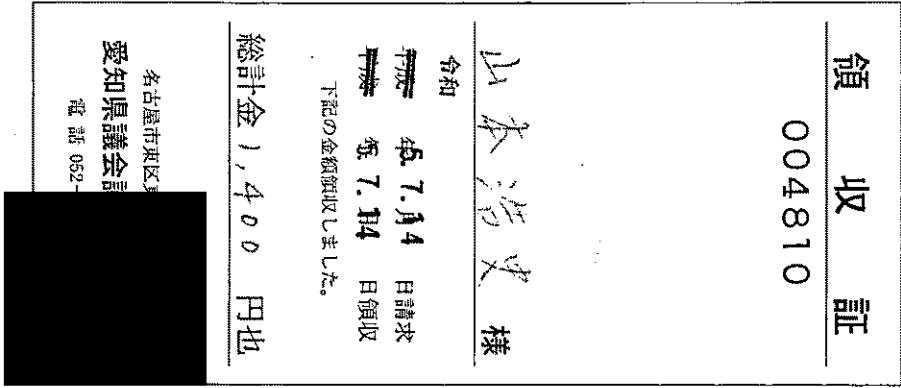 領収証
004810
山本浩史 様
令和
平成 年5.7.月14 日請求
平成 年5.7.月14 日領収
下記の金額領収しました。
総計金 1,400 円也
名古屋市東区
愛知県議会
電話 052-